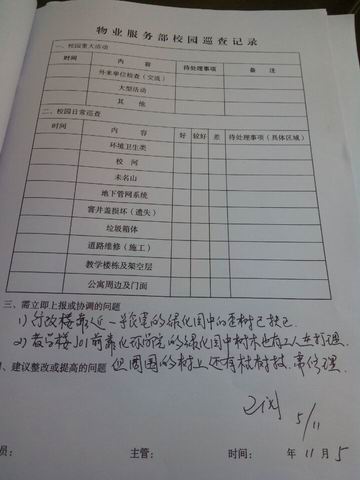 物业服务部校园巡查记录
一、校园重大活动
时间 内容 待处理事项 备注
外来单位检查（交流）
大型活动
其他
二、校园日常巡查
时间 内容 好 较好 差 待处理事项（具体区域）
环境卫生类
校河
未名山
地下管网系统
窨井盖损坏（遗失）
垃圾箱体
道路维修（施工）
教学楼栋及架空层
公寓周边及门面
三、需立即上报或协调的问题
1) 行政楼靠近一学院的绿化团中的歪树已扶正.
2) 教学楼J01前靠化环学院的绿化团中树木也有工人在打理.
、建议整改或提高的问题 但周围的树上还有枯树枝 需修理.
5/11
员： 主管： 时间： 年 11 月 5